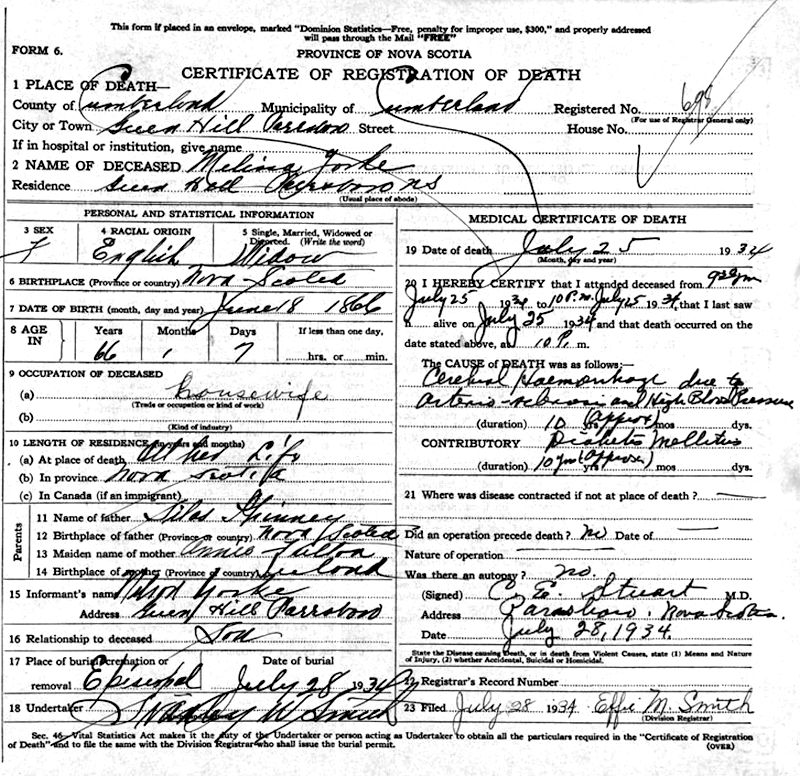 This form if placed in an envelope, marked "Dominion Statistics—Free, penalty for improper use, $300," and properly addressed
will pass through the Mail "FREE"
FORM 6.
PROVINCE OF NOVA SCOTIA
CERTIFICATE OF REGISTRATION OF DEATH
1 PLACE OF DEATH—
County of Cumberland Municipality of Cumberland Registered No. 698
(For use of Registrar General only)
City or Town Green Hill Parrsboro Street House No.
If in hospital or institution, give name
2 NAME OF DECEASED Melina Yorke
Residence Green Hill Parrsboro NS
(Usual place of abode)
PERSONAL AND STATISTICAL INFORMATION
3 SEX 4 RACIAL ORIGIN 5 Single, Married, Widowed or Divorced. (Write the word)
F English Widow
6 BIRTHPLACE (Province or country) Nova Scotia
7 DATE OF BIRTH (month, day and year) June 18 1866
8 AGE IN Years Months Days If less than one day,
66 1 7 hrs. or min.
9 OCCUPATION OF DECEASED
(a) housewife
(Trade or occupation or kind of work)
(b)
(Kind of industry)
10 LENGTH OF RESIDENCE (in years and months)
(a) At place of death All her Life
(b) In province Nova Scotia
(c) In Canada (if an immigrant)
Parents
11 Name of father Silas Spinney
12 Birthplace of father (Province or country) Nova Scotia
13 Maiden name of mother Annie Fulton
14 Birthplace of mother (Province or country)
15 Informant's name Yorke
Address Green Hill Parrsboro
16 Relationship to deceased Son
17 Place of burial cremation or removal Date of burial
Episcopal July 28 1934
18 Undertaker W Smith
MEDICAL CERTIFICATE OF DEATH
19 Date of death July 25 1934
(Month, day and year)
20 I HEREBY CERTIFY that I attended deceased from 9
July 25 1934 to 10 P.m. July 25 1934, that I last saw
h alive on July 25 1934 and that death occurred on
date stated above, at 10 P. m.
The CAUSE of DEATH was as follows:—
Cerebral Haemorrhage due to
and High Blood Pressure
(duration) 10 (Approx) yrs mos dys.
CONTRIBUTORY Diabetes Mellitus
(duration) 10 yrs (Approx) mos dys.
21 Where was disease contracted if not at place of death?
Did an operation precede death? no Date of
Nature of operation
Was there an autopsy? no.
(Signed) Stuart M.D.
Address Parrsboro. Nova Scotia.
Date July 28, 1934.
State the Disease causing Death, or in death from Violent Causes, state (1) Means and Nature
of Injury, (2) whether Accidental, Suicidal or Homicidal.
22 Registrar's Record Number
23 Filed July 28 1934 Effie M. Smith
(Division Registrar)
Sec. 46—Vital Statistics Act makes it the duty of the Undertaker or person acting as Undertaker to obtain all the particulars required in the "Certificate of Registration
of Death" and to file the same with the Division Registrar who shall issue the burial permit.
(OVER)